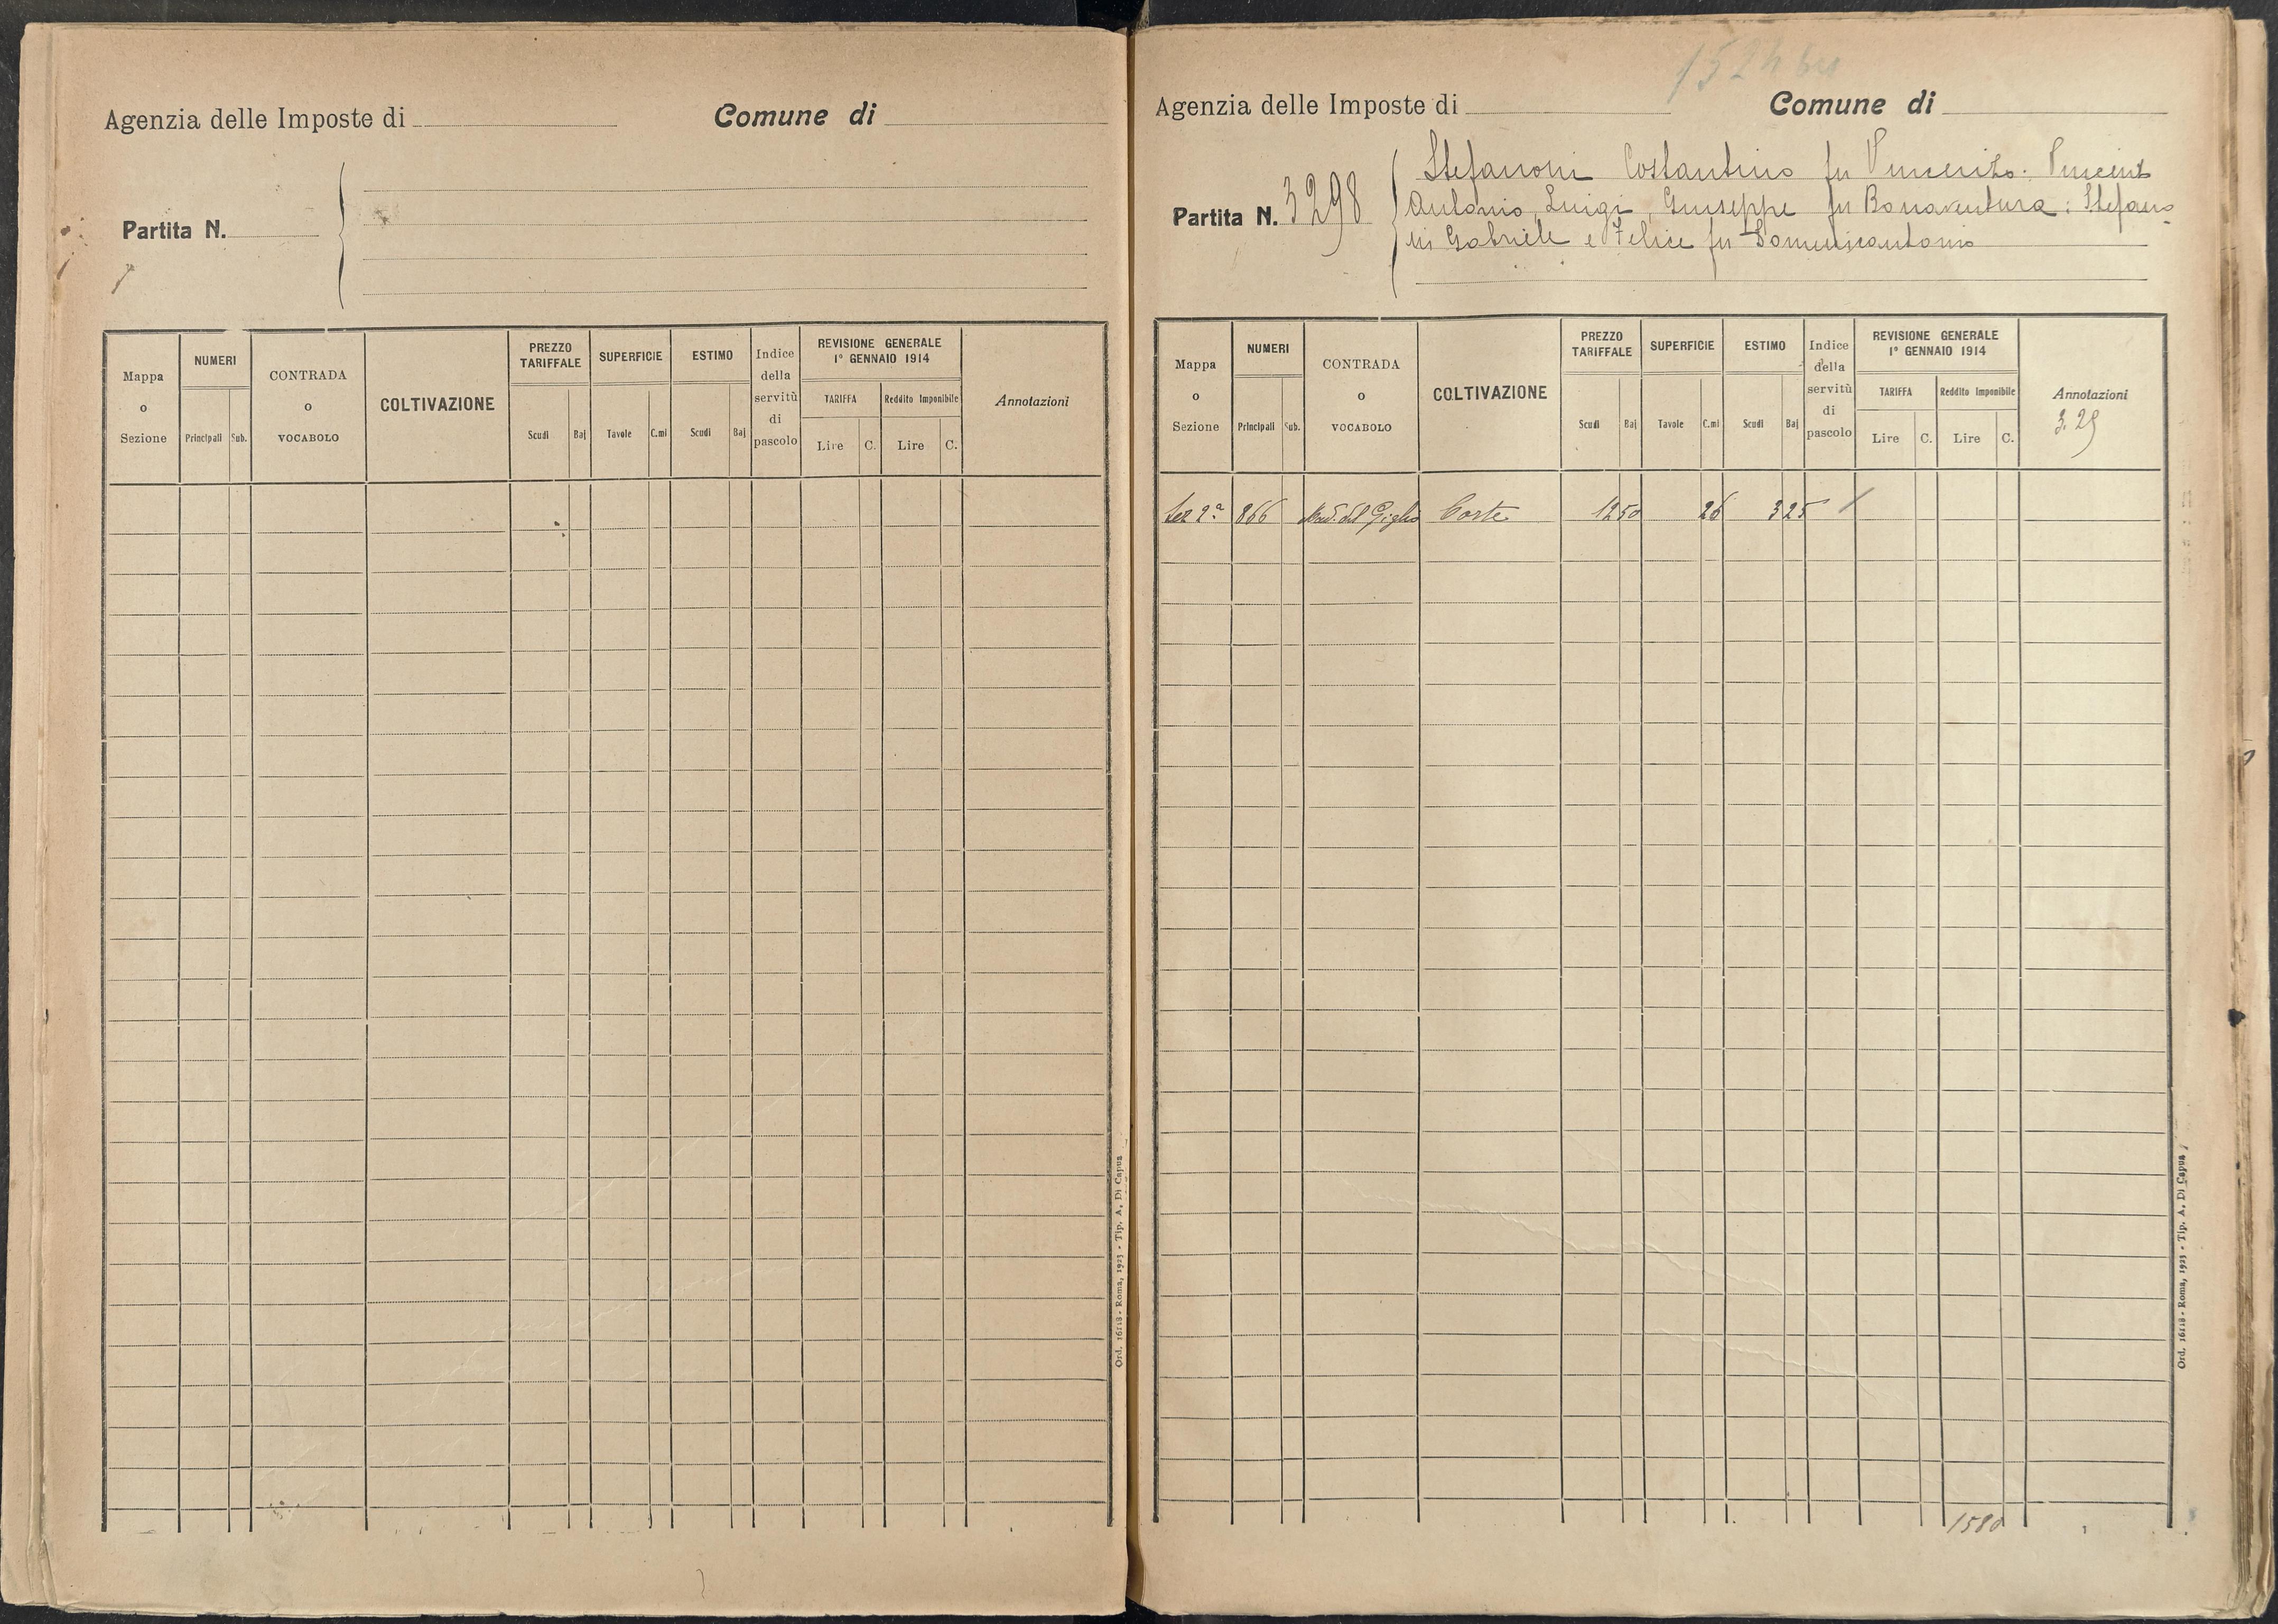 Agenzia delle Imposte di
Comune di
Partita N.
Mappa o Sezione
NUMERI
Principali
Sub.
CONTRADA o VOCABOLO
COLTIVAZIONE
PREZZO TARIFFALE
Scudi
Baj
SUPERFICIE
Tavole
C.mi
ESTIMO
Scudi
Baj
Indice della servitù di pascolo
REVISIONE GENERALE
1° GENNAIO 1914
TARIFFA
Reddito Imponibile
Lire
C.
Lire
C.
Annotazioni
Ord. 16118 - Roma, 1923 - Tip. A. Di Capua
Agenzia delle Imposte di
Comune di
Partita N. 3298
Stefanoni Costantino fu Vincenzo: Vincenzo
Antonio, Luigi, Giuseppe fu Bonaventura: Stefano
ni Gabriele e Felice fu Domenicantonio
Mappa o Sezione
NUMERI
Principali
Sub.
CONTRADA o VOCABOLO
COLTIVAZIONE
PREZZO TARIFFALE
Scudi
Baj
SUPERFICIE
Tavole
C.mi
ESTIMO
Scudi
Baj
Indice della servitù di pascolo
REVISIONE GENERALE
1° GENNAIO 1914
TARIFFA
Reddito Imponibile
Lire
C.
Lire
C.
Annotazioni
3.25
Sez 2ª 866 Mad. del Giglio Corte 1250 26 325
1580
Ord. 16118 - Roma, 1923 - Tip. A. Di Capua